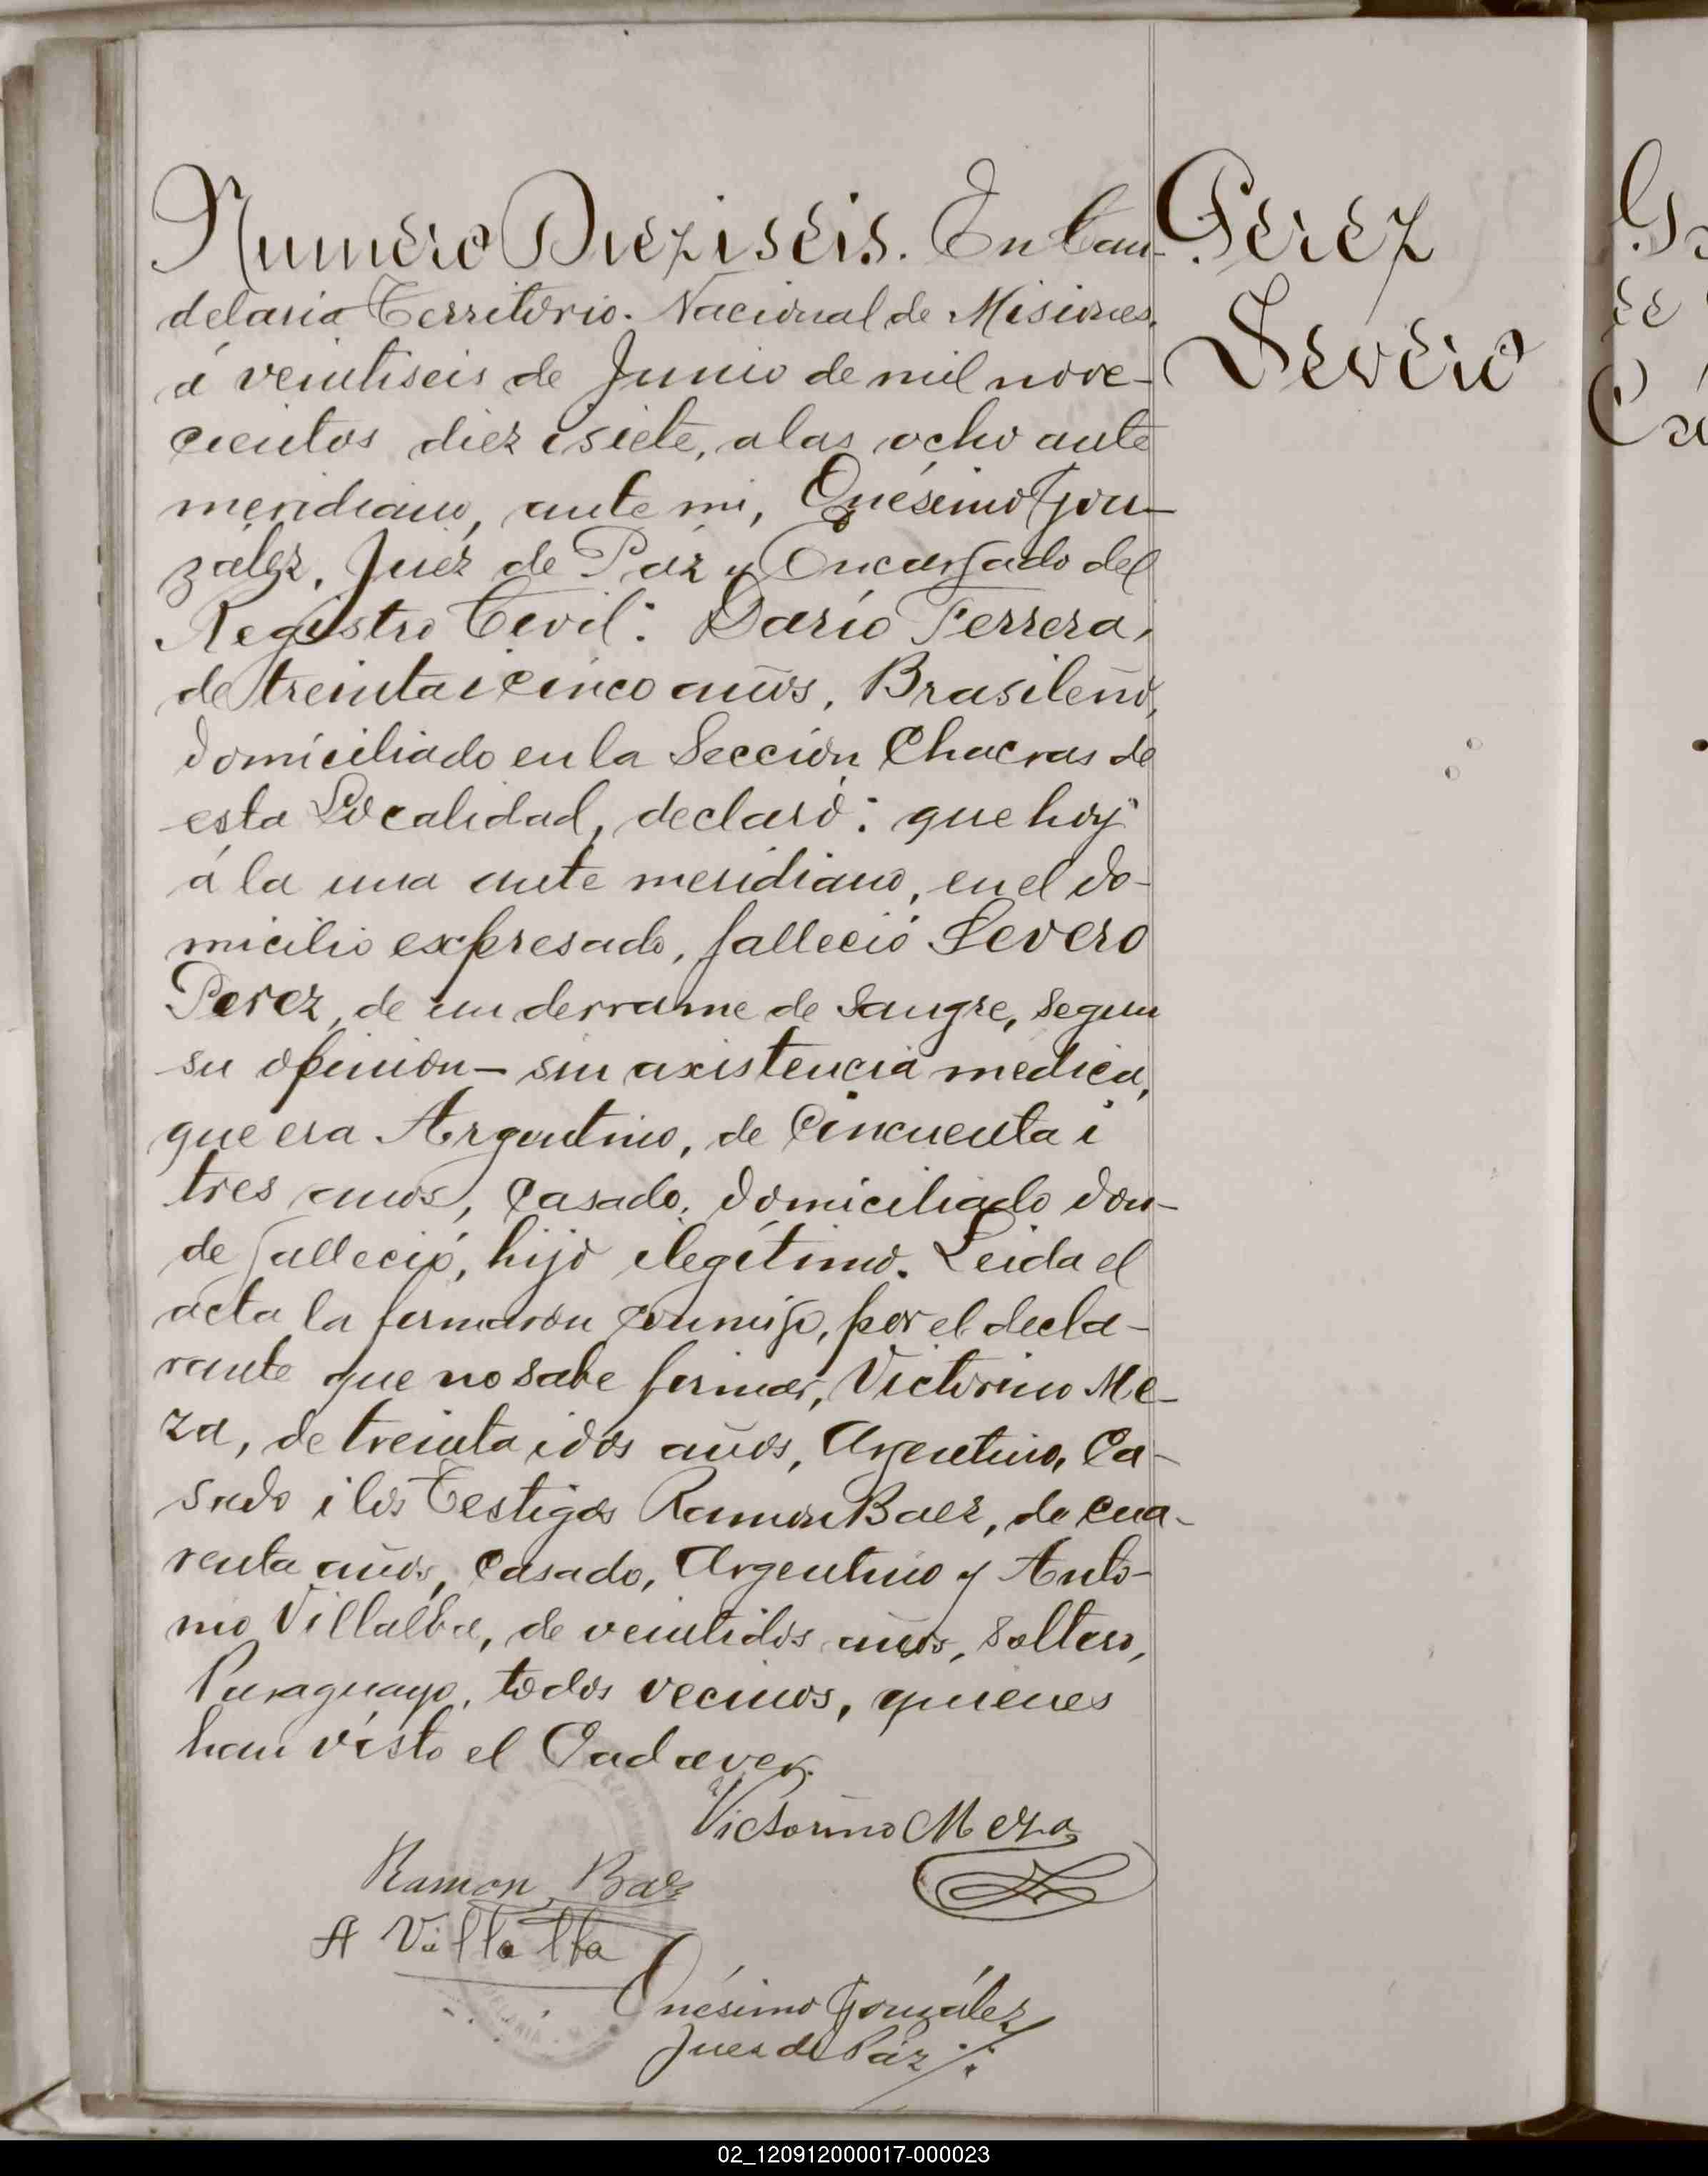 Numero Diez i seis. En Can-
delaria Territorio. Nacional de Misiones,
á veintiseis de Junio de mil nove-
cientos diez i siete, a las ocho ante
meridiano, ante mi, Onésimo Gon-
zález, Juéz de Páz y Encargado del
Registro Civil: Darío Ferrera,
de treinta i cinco años, Brasileño,
domiciliado en la Sección Chacras de
esta Localidad, declaró: que hoy
á la una ante meridiano, en el do-
micilio expresado, falleció Severo
Perez, de un derrame de sangre, segun
su opinión- sin axistencia médica,
que era Argentino, de Cincuenta i
tres años, Casado, domiciliado don-
de falleció, hijo ilegítimo. Leida el
acta la firmaron conmigo, por el decla-
rante que no sabe firmar, Victorino Me-
za, de treinta i dos años, Argentino, Ca-
sado i los Testigos Ramón Baez, de cua-
renta años, Casado, Argentino y Anto-
nio Villalba, de veintidos años, soltero,
Paraguayo, todos vecinos, quienes
han visto el Cadaver.
Perez
Severo
Victorino Meza
Ramon Baez
A Villalba
Onésimo González
Juez de Páz
02_120912000017-000023